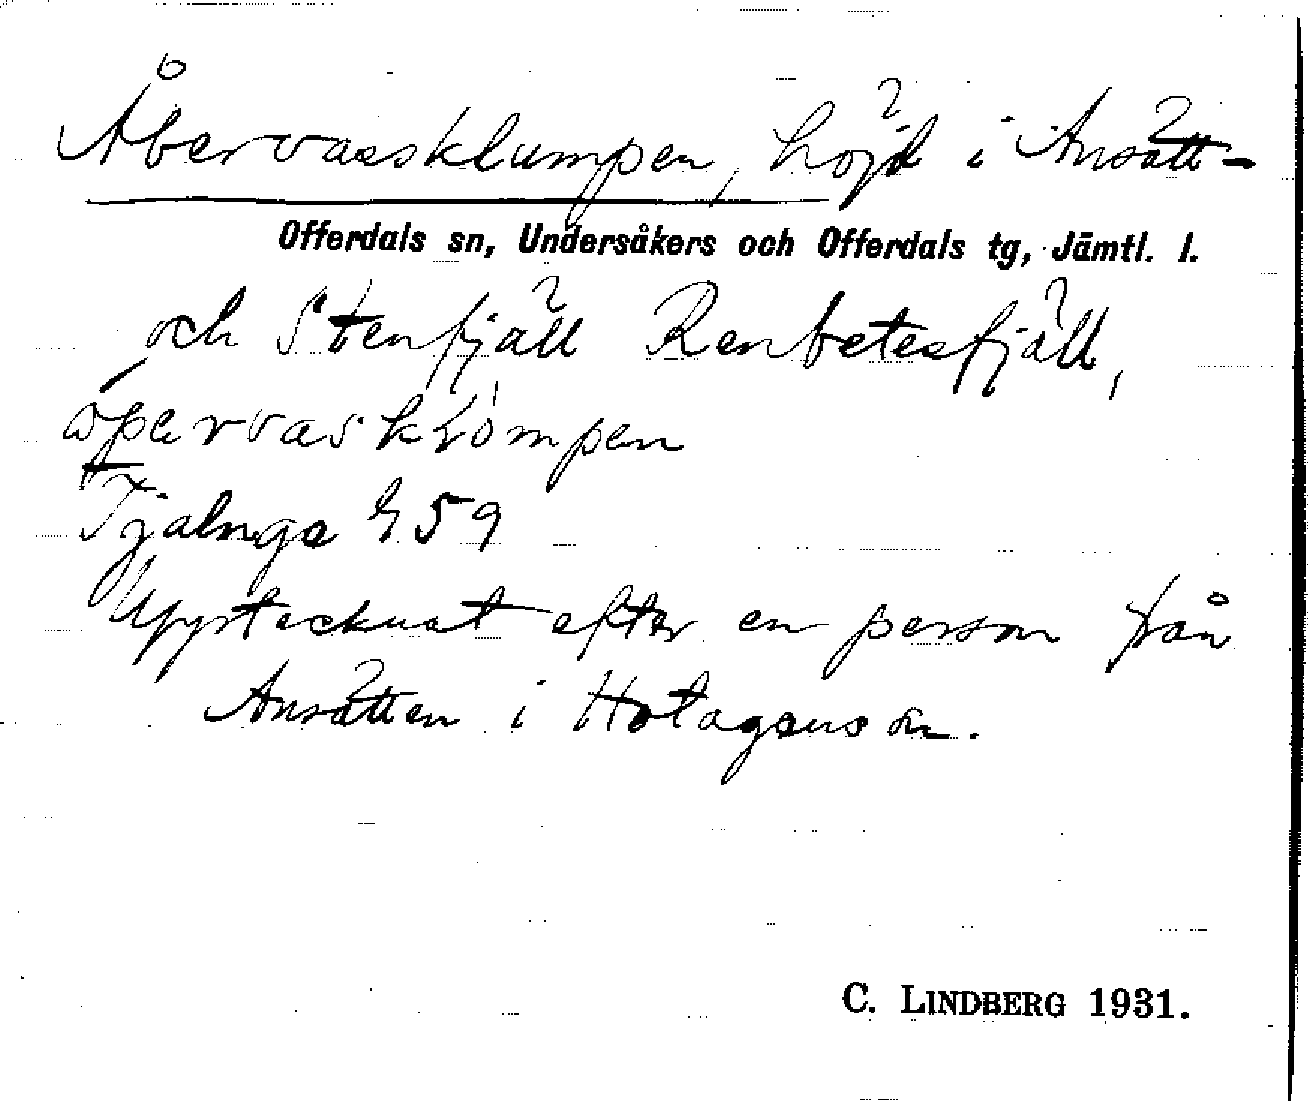 Åbervassklumpen, höjd i Ansätt-
Offerdals sn, Undersåkers och Offerdals tg, Jämtl. l.
och Stenfjäll Renbetesfjäll,
Tjalnge 459
Upptecknat efter en person från
Ansätten i Hotagens sn.
C. LINDBERG 1931.